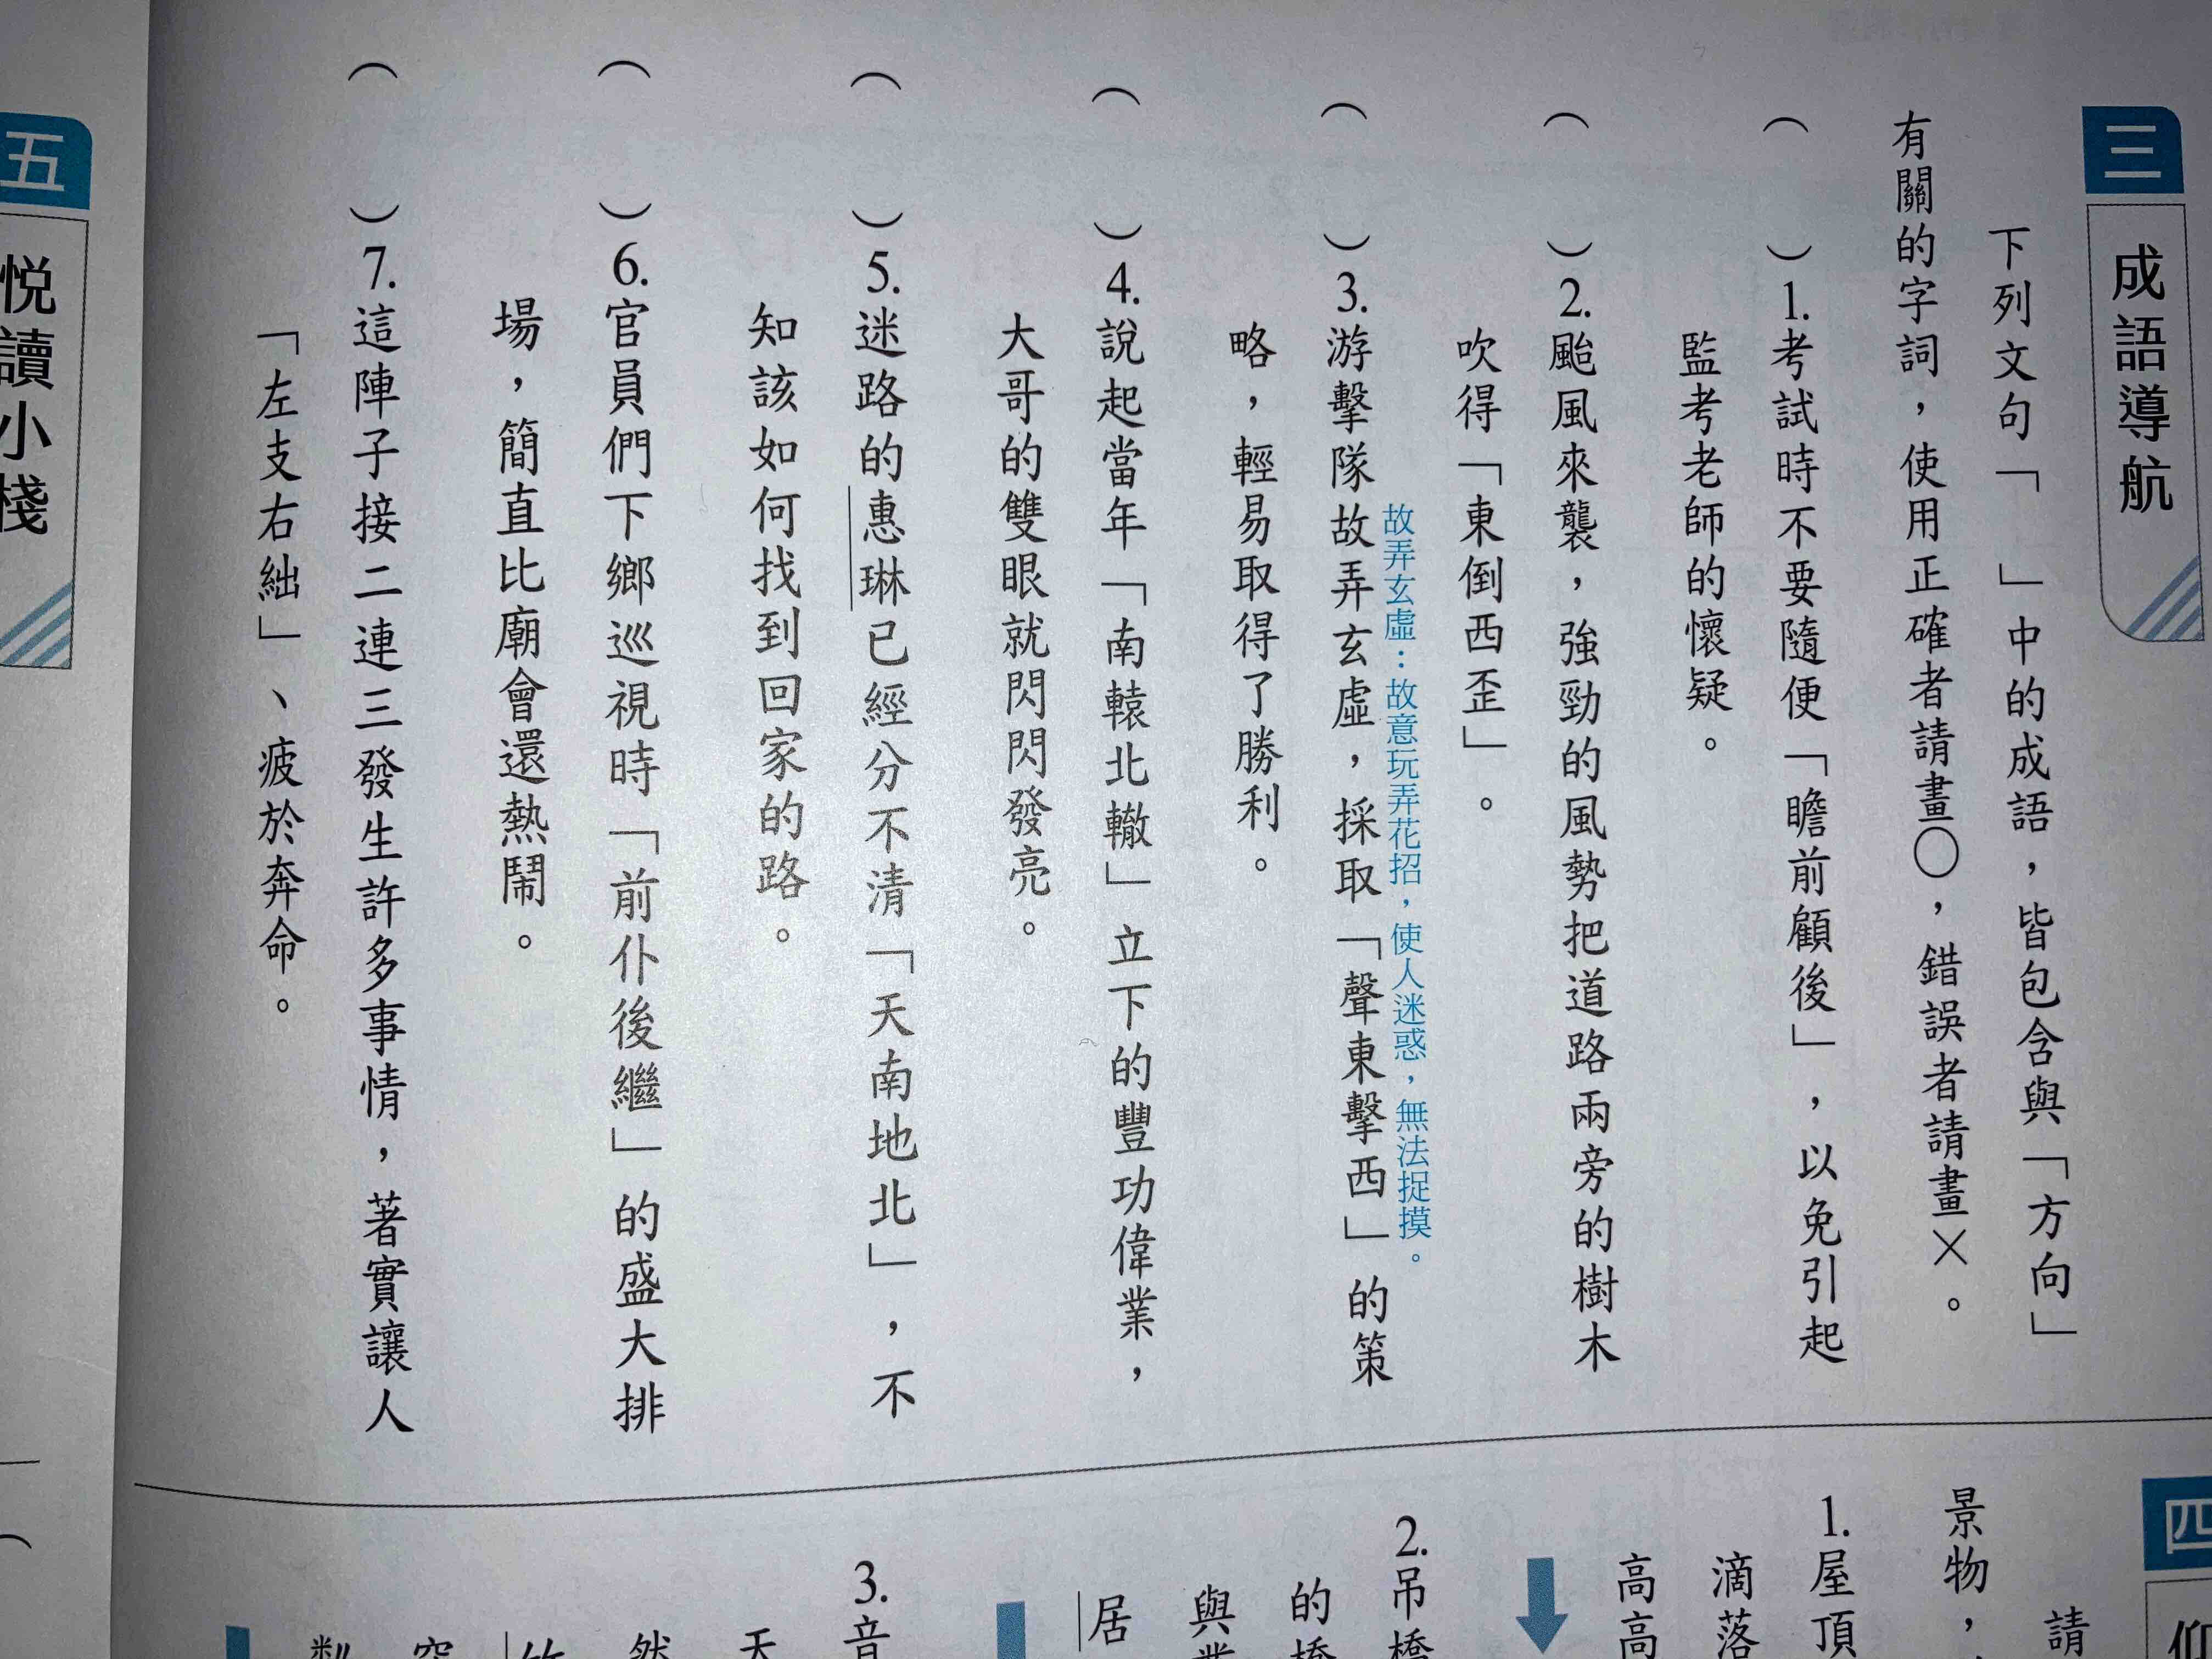 三 成語導航
下列文句「　」中的成語，皆包含與「方向」
有關的字詞，使用正確者請畫○，錯誤者請畫×。
（　）1.考試時不要隨便「瞻前顧後」，以免引起
監考老師的懷疑。
（　）2.颱風來襲，強勁的風勢把道路兩旁的樹木
吹得「東倒西歪」。
故弄玄虛：故意玩弄花招，使人迷惑，無法捉摸。
（　）3.游擊隊故弄玄虛，採取「聲東擊西」的策
略，輕易取得了勝利。
（　）4.說起當年「南轅北轍」立下的豐功偉業，
大哥的雙眼就閃閃發亮。
（　）5.迷路的惠琳已經分不清「天南地北」，不
知該如何找到回家的路。
（　）6.官員們下鄉巡視時「前仆後繼」的盛大排
場，簡直比廟會還熱鬧。
（　）7.這陣子接二連三發生許多事情，著實讓人
「左支右絀」、疲於奔命。
四 仰
請
景物，
1.屋頂
滴落
高高
2.吊橋
的橋
與業
居
3.音
天
然
竹
空
五 悅讀小棧
（